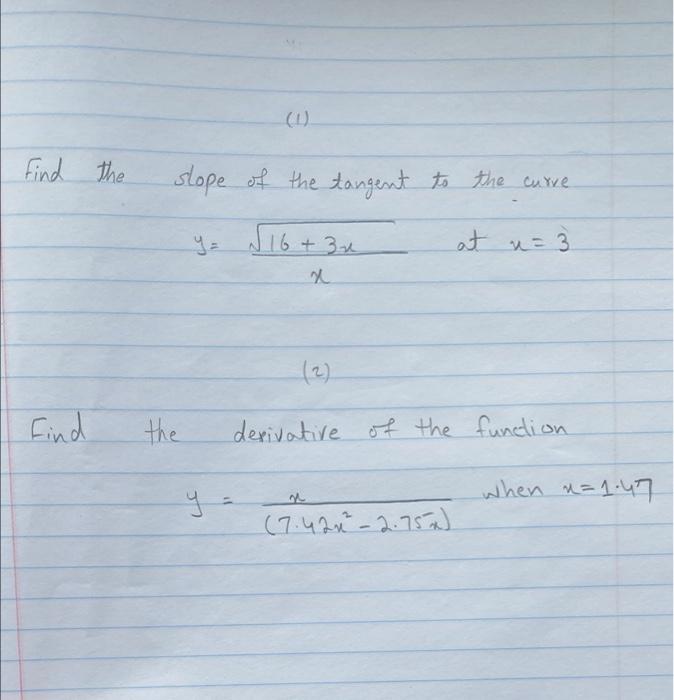 (1)
Find the slope of the tangent to the curve
y = √16 + 3x / x at x = 3
(2)
Find the derivative of the function
y = x / (7.42x² - 2.75x) when x = 1.47